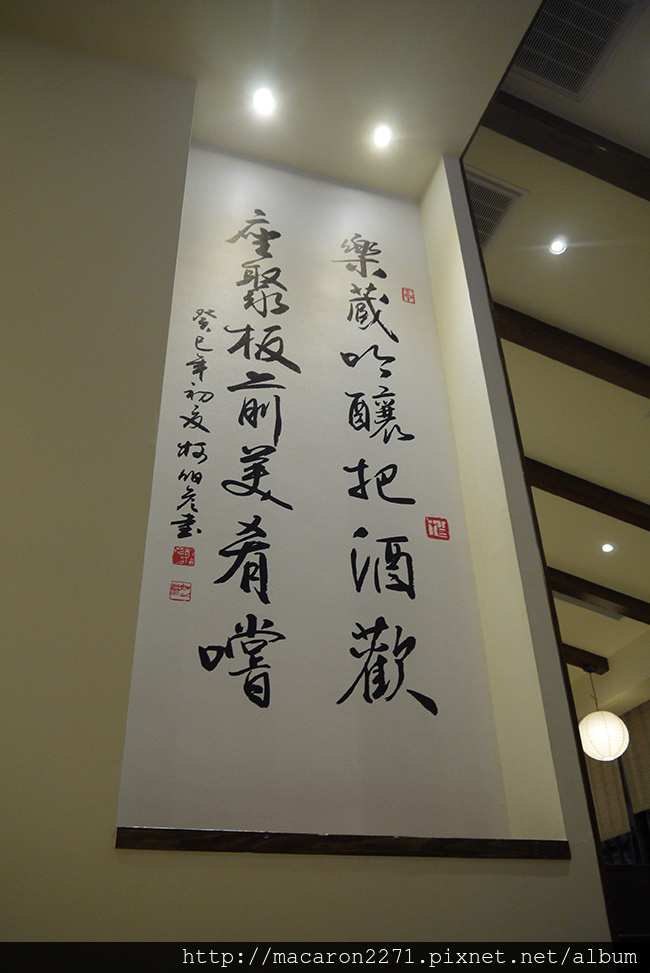 樂蔵吟釀把酒歡
座聚板前美肴嚐
癸巳年初夏柯伯彥書
http://macaron2271.pixnet.net/album